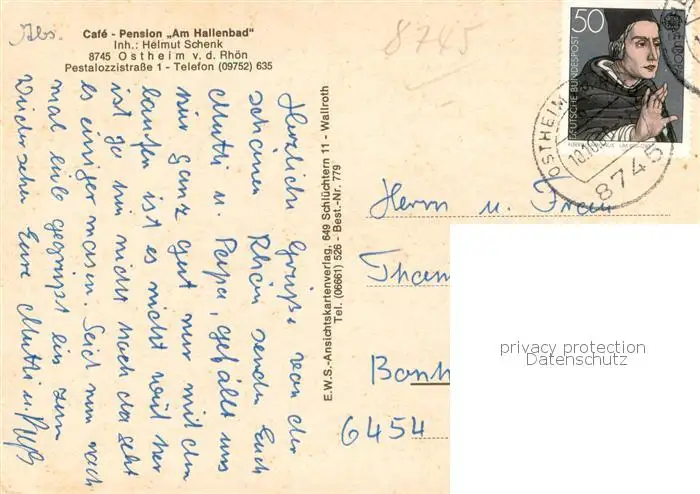 Abs.
Café - Pension „Am Hallenbad"
Inh.: Helmut Schenk
8745 Ostheim v. d. Rhön
Pestalozzistraße 1 - Telefon (09752) 635
8745
50
DEUTSCHE BUNDESPOST
OSTHEIM
8745
Herzliche Grüße von der
schönen Rhön senden Euch
Mutti u. Papa, gefällt uns
hir ganz gut nur mit dem
laufen ist es nicht weit her
ist ja hir nicht nach da geht
es einiger masen. Seid nun noch
mal lieb gegrüßt bis zum
Wiedersehen Eure Mutti u.
E.W.S.-Ansichtskartenverlag, 649 Schlüchtern 11 - Wallroth
Tel. (06661) 526 - Best.-Nr. 779
Herrn u. Frau
6454
privacy protection
Datenschutz